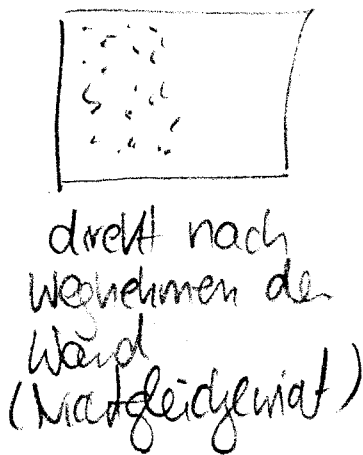 direkt nach
Wegnehmen der
Wand
(Nichtgleichgewicht)